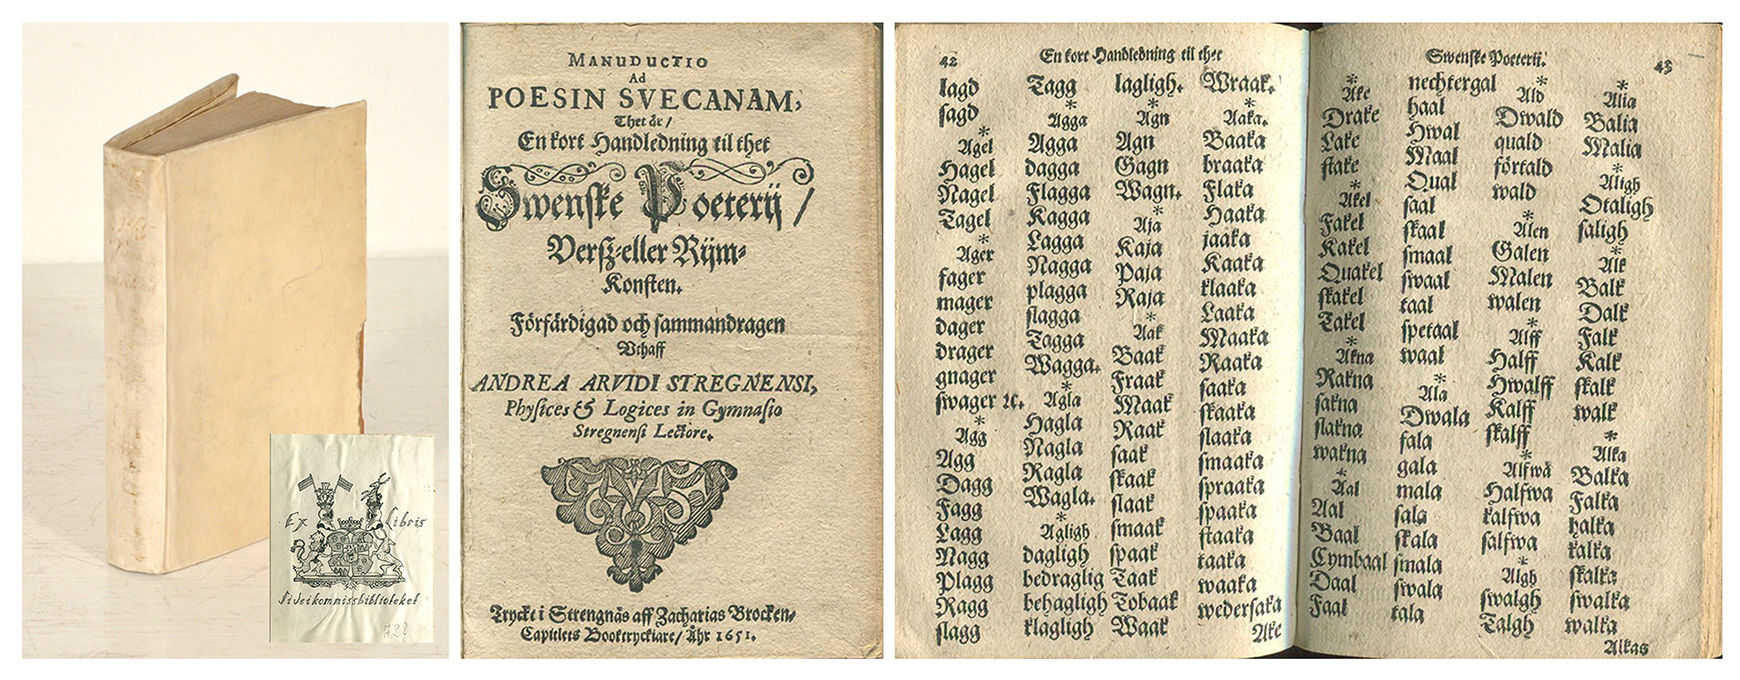 Ex Libris
Fideikommissbiblioteket
MANUDUCTIO
Ad
POESIN SVECANAM,
Thet är/
En kort Handledning til thet
Swenske Poeterij/
Versz-eller Rijm-
Konsten.
Förfärdigad och sammandragen
Vthaff
ANDREA ARVIDI STREGNENSI,
Physices & Logices in Gymnasio
Stregnensi Lectore.
Tryckt i Strengnäs aff Zacharias Brocken/
Capitlets Booktryckiare/ Åhr 1651.
42
En kort Handledning til thet
lagd
sagd
*
Agel
Hagel
Nagel
Tagel
*
Ager
fager
mager
dager
drager
gnager
swager ꝛc.
*
Agg
Agg
Dagg
Fagg
Lagg
Nagg
Plagg
Ragg
slagg
Tagg
*
Agga
Agga
dagga
Flagga
Kagga
Lagga
Nagga
plagga
slagga
Tagga
Wagga.
*
Agla
Hagla
Nagla
Ragla
Wagla.
*
Agligh
dagligh
bedraglig
behagligh
klagligh
lagligh.
*
Agn
Agn
Gagn
Wagn.
*
Aja
Kaja
Paja
Raja
*
Aak
Baak
Fraak
Maak
Raak
saak
skaak
slaak
smaak
spaak
Taak
Tobaak
Waak
Wraak.
*
Aaka.
Baaka
braaka
Flaka
Haaka
jaaka
Kaaka
klaaka
Laaka
Maaka
Raaka
saaka
skaaka
slaaka
smaaka
spraaka
spaaka
staaka
taaka
waaka
wedersaka
Ake
Swenske Poeterij.
43
*
Ake
Drake
Lake
stake
*
Akel
Fakel
Kakel
Quakel
skakel
Takel
*
Akna
Rakna
sakna
slakna
wakna
*
Aal
Aal
Baal
Cymbaal
Daal
Faal
nechtergal
haal
Hwal
Maal
Qual
saal
skaal
smaal
swaal
taal
spetaal
waal
*
Ala
Dwala
fala
gala
mala
sala
skala
smala
swala
tala
*
Ald
Dwald
quald
förtald
wald
*
Alen
Galen
Malen
walen
*
Alff
Halff
Hwalff
Kalff
skalff
*
Alfwa
Halfwa
kalfwa
salfwa
*
Algh
swalgh
Talgh
*
Alia
Balia
Malia
*
Aligh
Otaligh
saligh
*
Alk
Balk
Dalk
Falk
Kalk
skalk
walk
*
Alka
Balka
Falka
halka
kalka
skalka
swalka
walka
Alkas